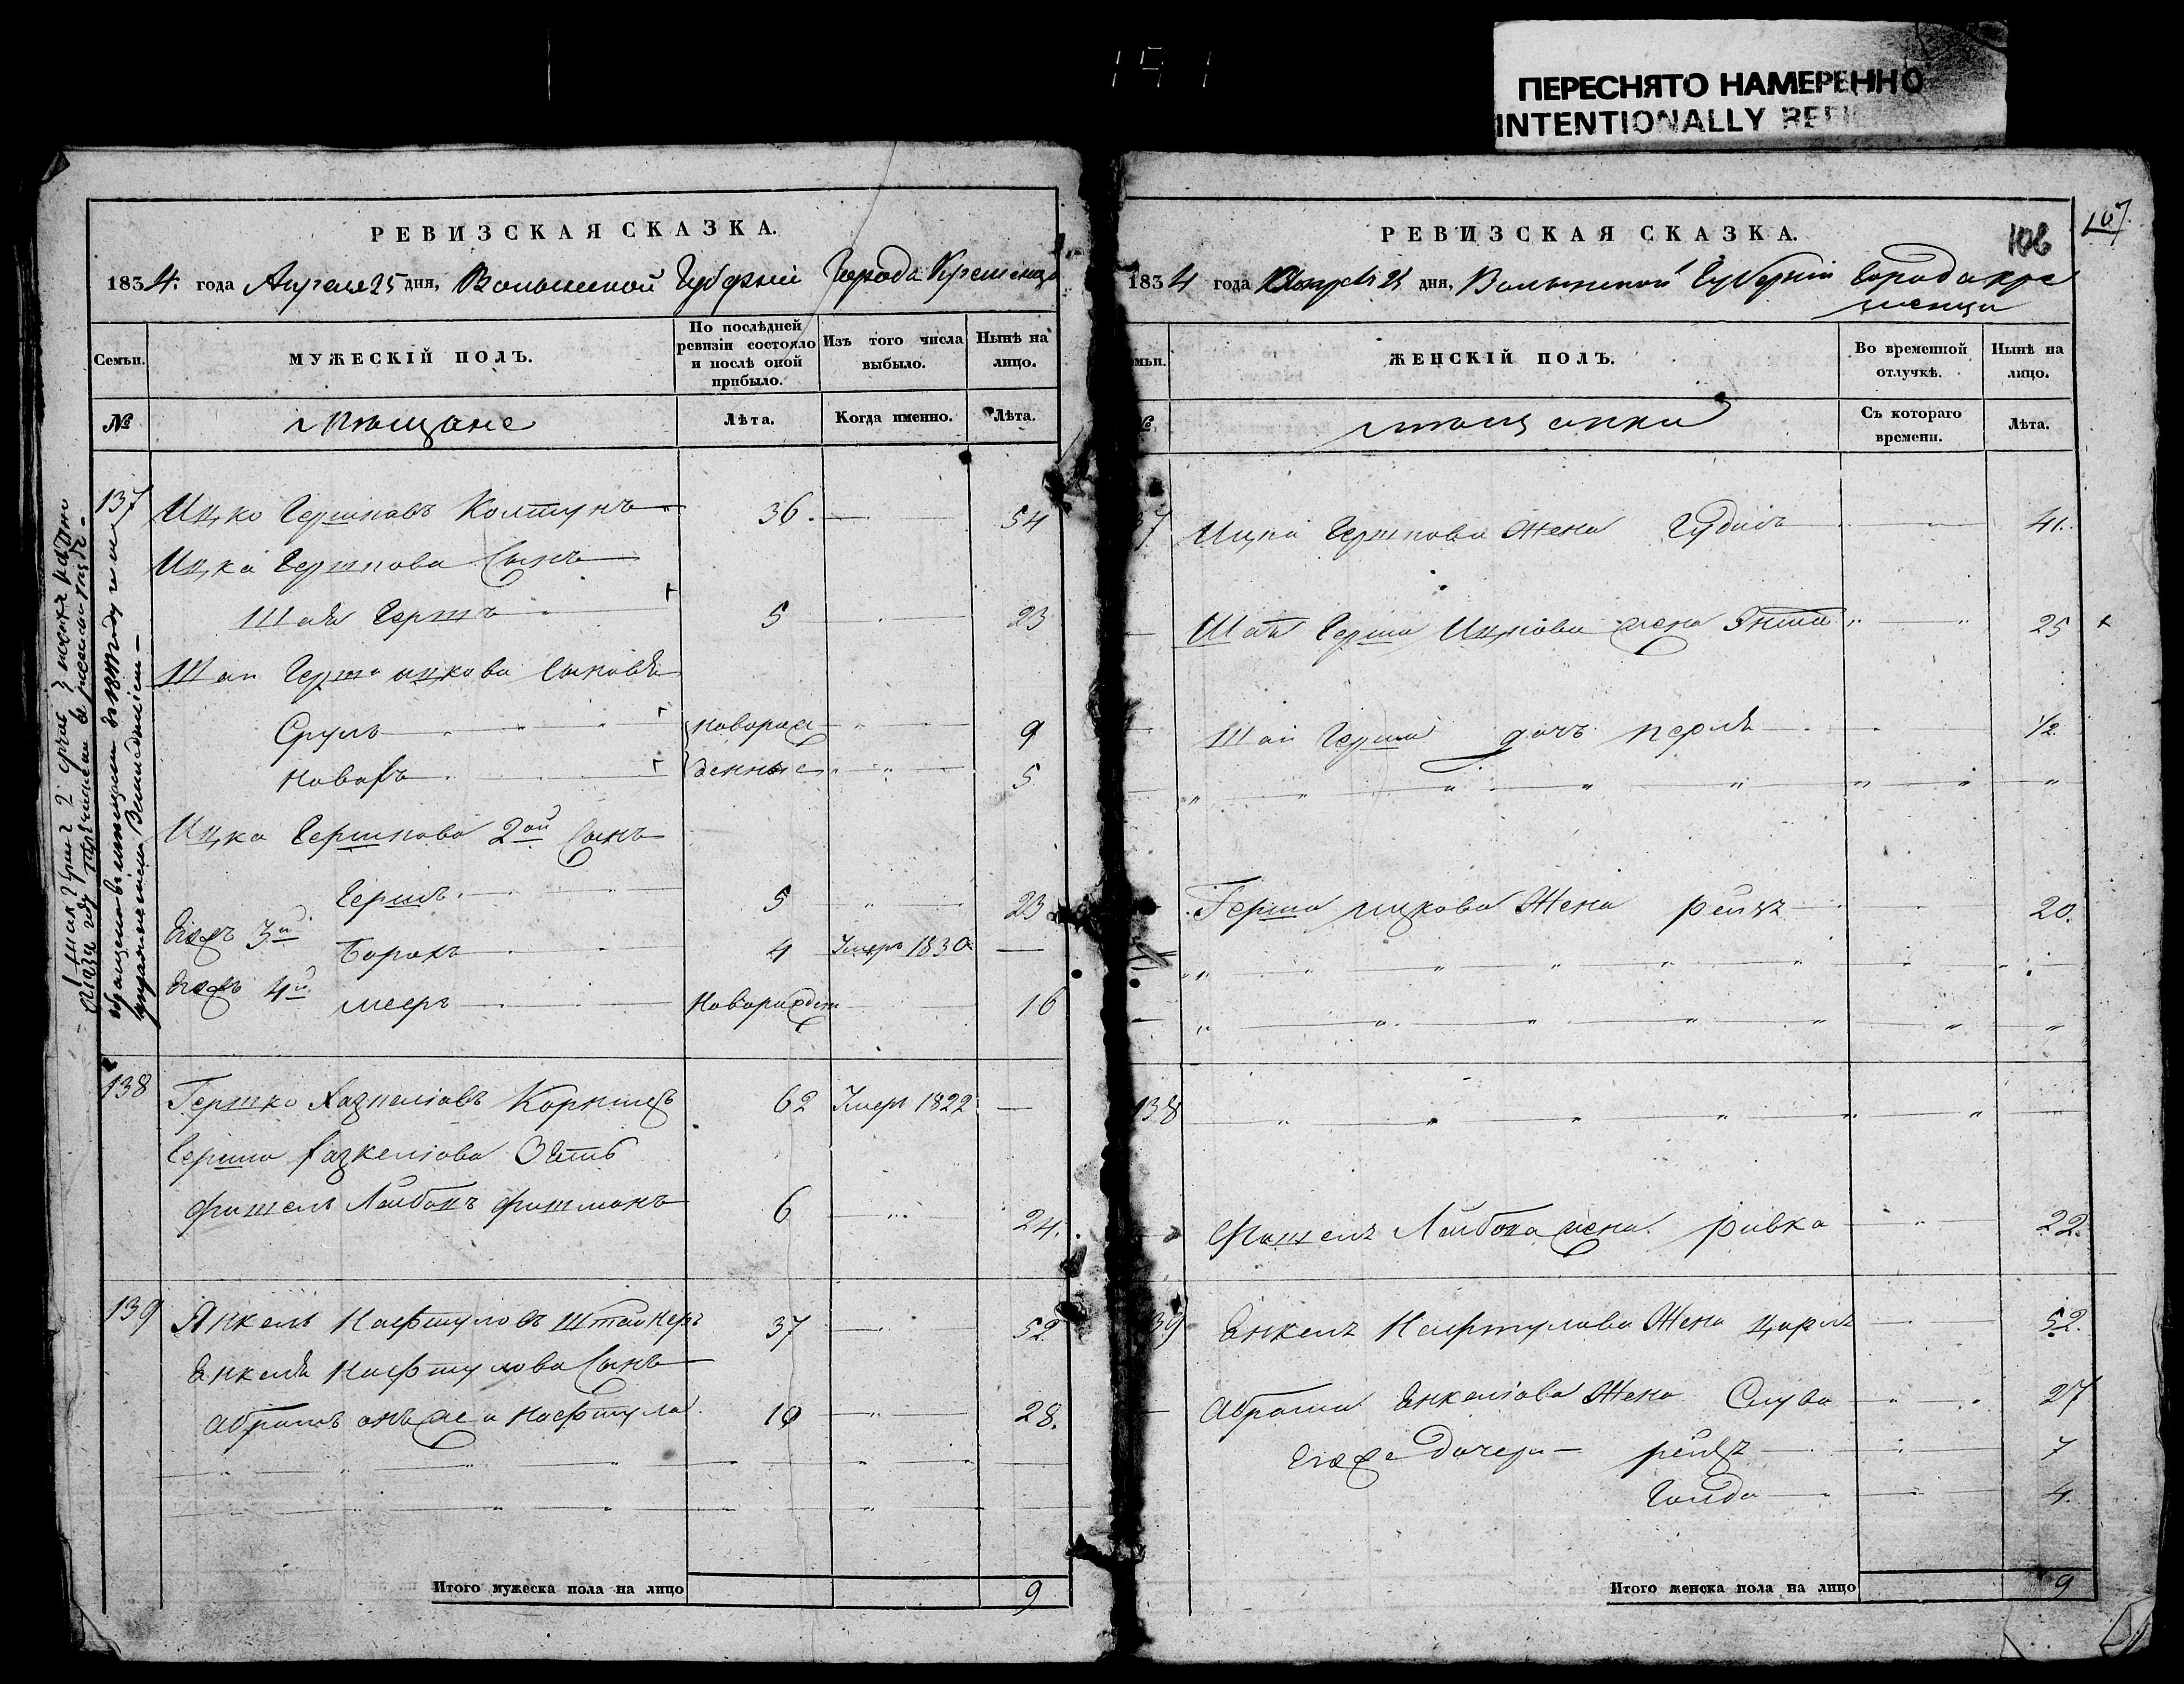 191
ПЕРЕСНЯТО НАМЕРЕННО
INTENTIONALLY
РЕВИЗСКАЯ СКАЗКА.
1834. года Апреля 25 дня, Волынской Губерніи Города Кременца
Семьи.
МУЖЕСКІЙ ПОЛЪ.
По послѣдней ревизіи состояло и послѣ оной прибыло.
Изъ того числа выбыло.
Нынѣ на лицо.
№
Мѣщане
Лѣта.
Когда именно.
Лѣта.
137 Ицко Гершковъ Колтунъ 36. 54
Ицка Гершкова Сынъ
Шая Гершъ 5 23
Шаи Герша Ицкова Сыновья
Сруль новорож 9
денные 5
Ицка Гершкова 2ой Сынъ
Гершъ 5 23
Егожъ 3й Борохъ 4 Умеръ 1830 —
Егожъ 4й Мееръ Новорожден 16
138 Гершко Хазкеліовъ 62 Умеръ 1822 —
Герша Хазкеліова Зять
Фишель Лейбовъ Фишманъ 6 24.
139 Янкель Нафтуловъ Штайнеръ 37 52
Енкеля Нафтулова Сынъ
Абрамъ онъ же и Нафтула 10 28.
Итого мужеска пола на лицо 9
РЕВИЗСКАЯ СКАЗКА.
106
107.
1834 года Апреля 25 дня, Волынской Губерніи Города Кре
менца
ЖЕНСКІЙ ПОЛЪ.
Во временной отлучкѣ.
Нынѣ на лицо.
мѣщанки
Съ котораго времени.
Лѣта.
37 Ицка Гершкова Жена 41.
Шаи Герша Ицкова жена Энта 25
Шаи Герша дочь Перля 1/2
Герша Ицкова Жена Рейзя 20.
138
Фишеля Лейбова жена Ривка 22.
39 Енкеля Нафтулова Жена Царля 52.
Абрама Енкеліова Жена Слува 27
Егоже Дочери Рейзя 7
Голда 4.
Итого женска пола на лицо 9